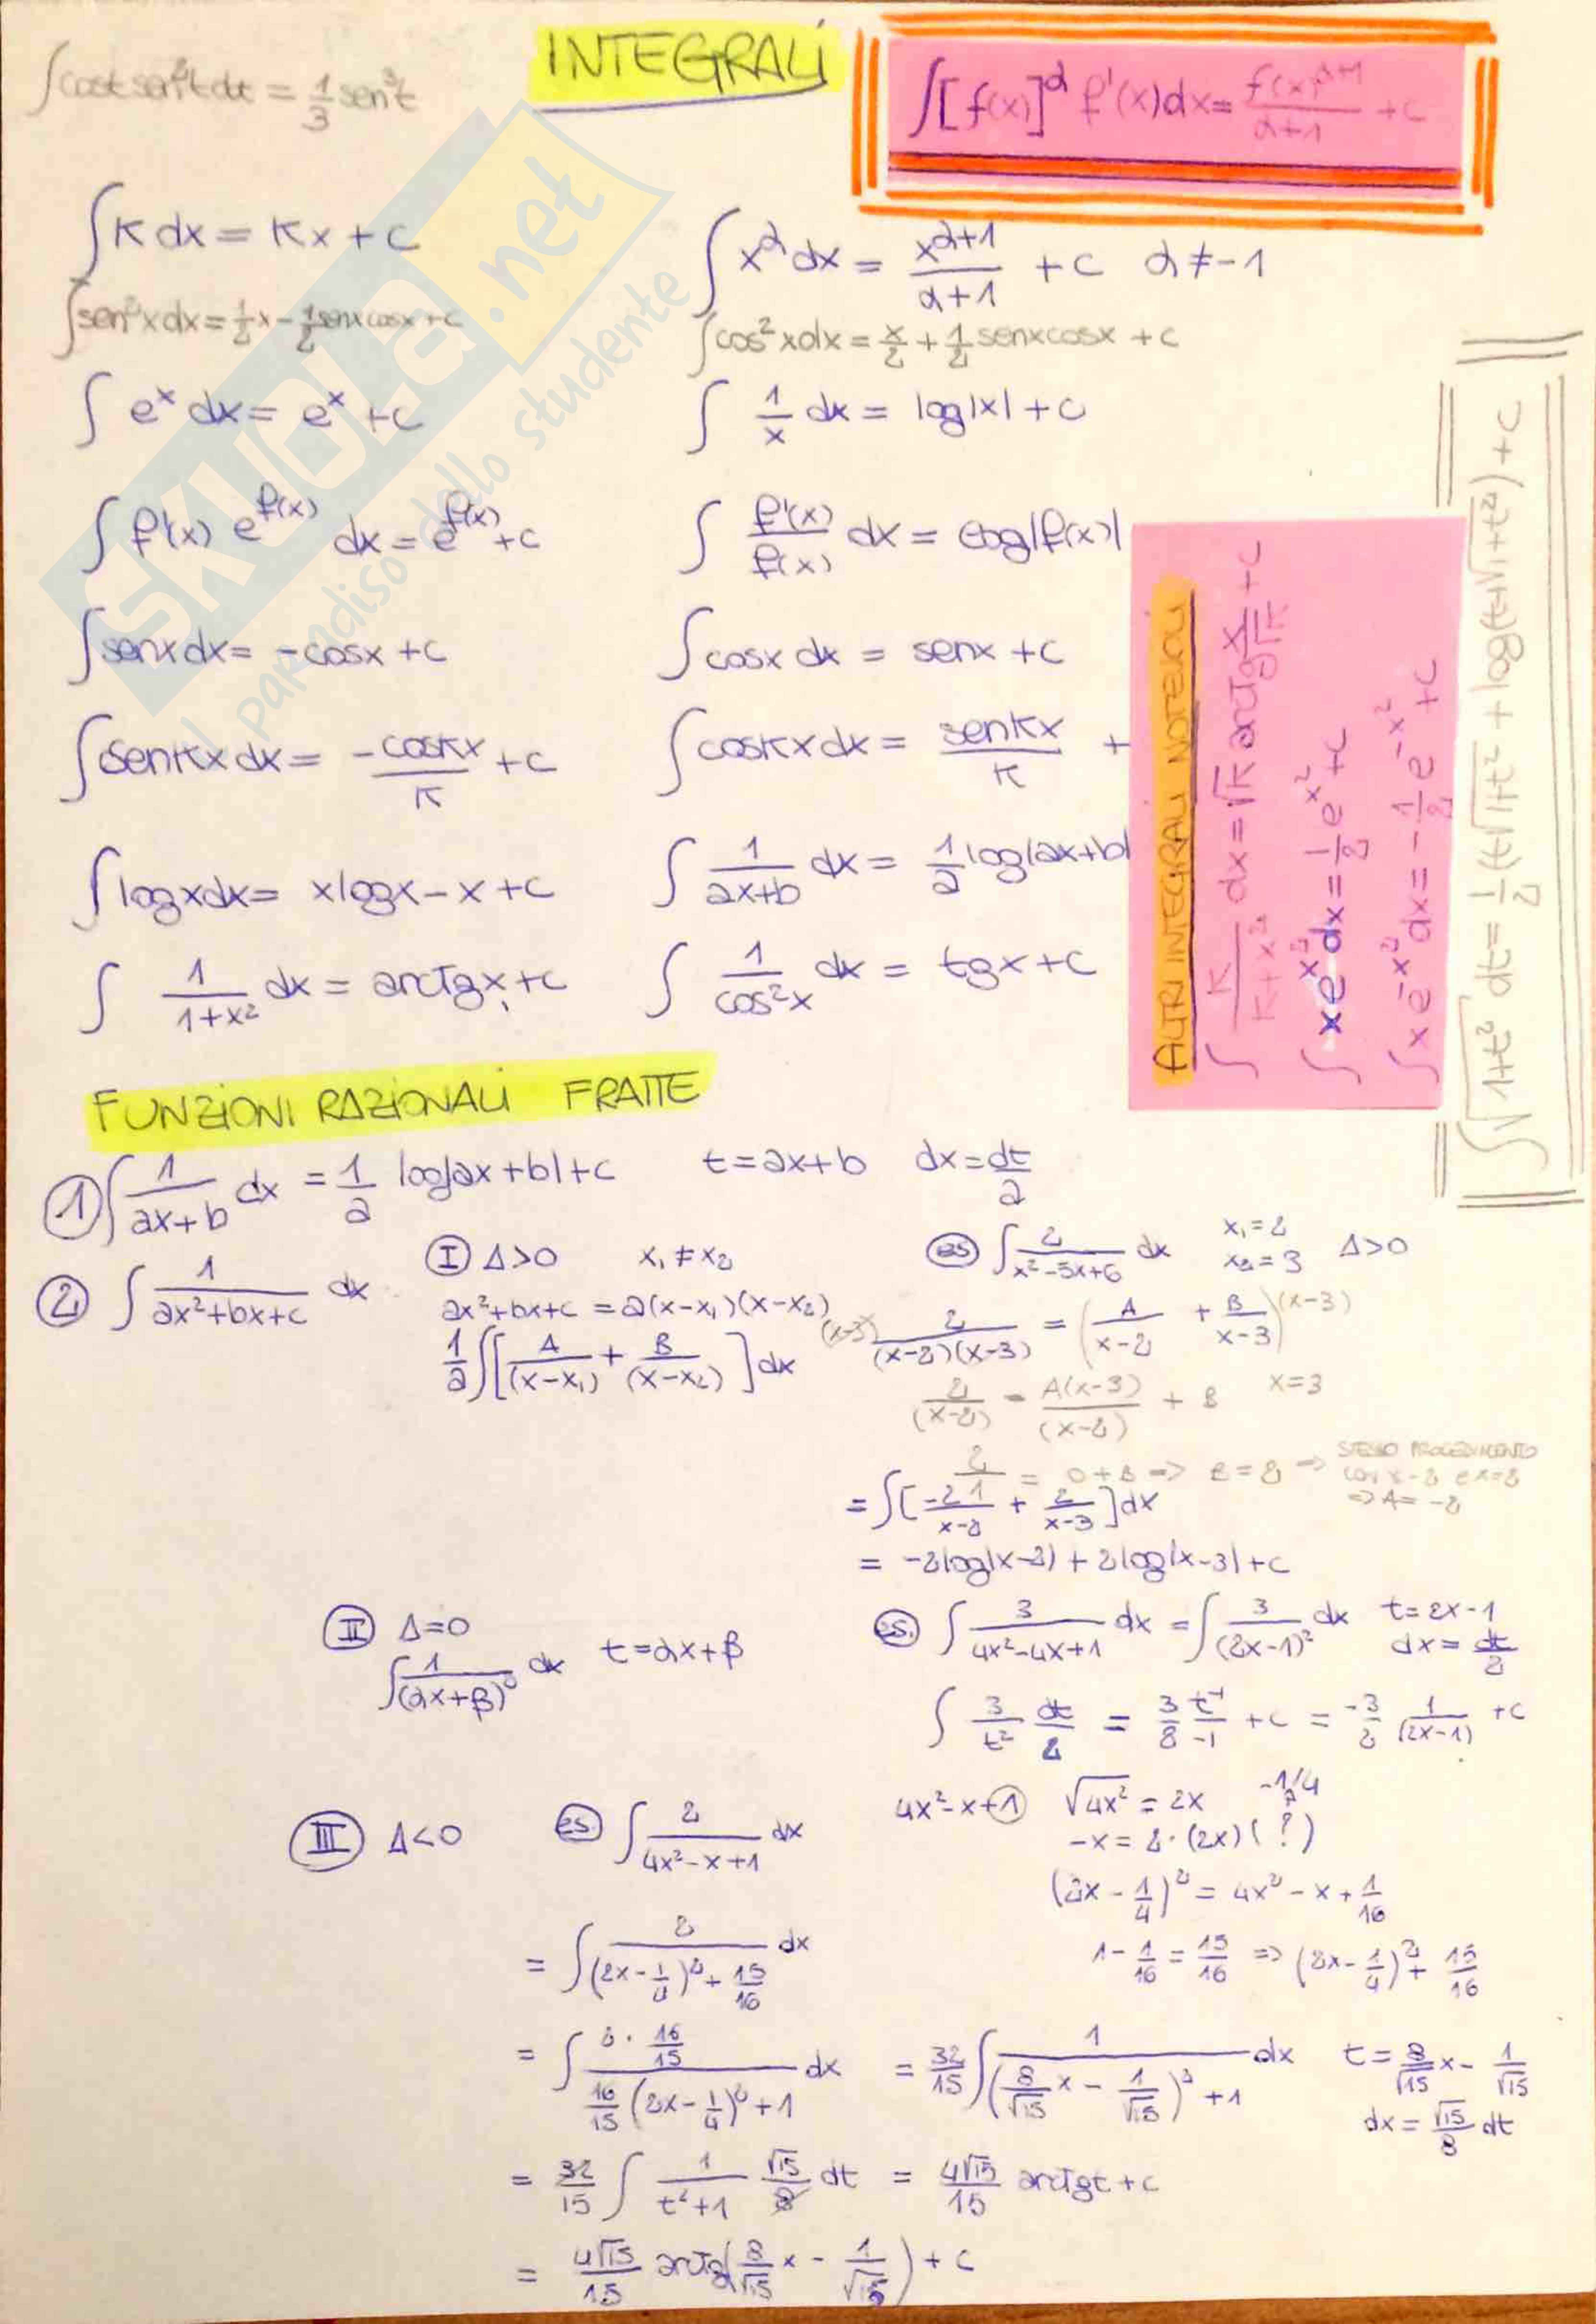 INTEGRALI
∫cost sen²t dt = 1/3 sen³t
∫[f(x)]^α f'(x)dx = f(x)^(α+1)/(α+1) + c
∫K dx = Kx + c
∫x^α dx = x^(α+1)/(α+1) + c   α ≠ -1
∫sen²x dx = 1/2 x - 1/2 senx cosx + c
∫cos²x dx = x/2 + 1/2 senx cosx + c
∫e^x dx = e^x + c
∫1/x dx = log|x| + c
∫f'(x) e^f(x) dx = e^f(x) + c
∫f'(x)/f(x) dx = log|f(x)|
∫senx dx = -cosx + c
∫cosx dx = senx + c
∫senKx dx = -cosKx/K + c
∫cosKx dx = senKx/K +
∫logx dx = xlogx - x + c
∫1/(ax+b) dx = 1/a log|ax+b|
∫1/(1+x²) dx = arctgx + c
∫1/cos²x dx = tgx + c
ALTRI INTEGRALI NOTEVOLI
∫K/(K+x²) dx = √K arctg x/√K + c
∫xe^x² dx = 1/2 e^x² + c
∫xe^-x² dx = -1/2 e^-x² + c
∫√(1+t²) dt = 1/2 (t√(1+t²) + log(t+√(1+t²)) + c
FUNZIONI RAZIONALI FRATTE
① ∫1/(ax+b) dx = 1/a log|ax+b| + c   t=ax+b   dx=dt/a
② ∫1/(ax²+bx+c) dx
Ⓘ Δ>0   x₁ ≠ x₂
ax²+bx+c = a(x-x₁)(x-x₂)
1/a ∫[A/(x-x₁) + B/(x-x₂)] dx
es ∫2/(x²-5x+6) dx   x₁=2   x₂=3   Δ>0
(x-3) 2/((x-2)(x-3)) = (A/(x-2) + B/(x-3)) (x-3)
2/(x-2) = A(x-3)/(x-2) + B   x=3
2/1 = 0+B => B=2 => STESSO PROCEDIMENTO
con x-2 e x=2
=> A= -2
= ∫[-2/(x-2) + 2/(x-3)] dx
= -2log|x-2| + 2log|x-3| + c
Ⅱ Δ=0
∫1/(αx+β)² dx   t=αx+β
es. ∫3/(4x²-4x+1) dx = ∫3/(2x-1)² dx   t=2x-1
dx = dt/2
∫3/t² dt/2 = 3/2 t^-1/-1 + c = -3/2 1/(2x-1) + c
Ⅲ Δ<0   es. ∫2/(4x²-x+1) dx
4x²-x+1   √4x² = 2x   -1/4
-x = 2·(2x)(?)
(2x - 1/4)² = 4x² - x + 1/16
1 - 1/16 = 15/16 => (2x - 1/4)² + 15/16
= ∫2/((2x-1/4)² + 15/16) dx
= ∫(2·16/15)/(16/15 (2x-1/4)² + 1) dx = 32/15 ∫1/((8/√15 x - 1/√15)² + 1) dx   t = 8/√15 x - 1/√15
dx = √15/8 dt
= 32/15 ∫1/(t²+1) √15/8 dt = 4√15/15 arctgt + c
= 4√15/15 arctg(8/√15 x - 1/√15) + c
SKUOLA.net
il paradiso dello studente